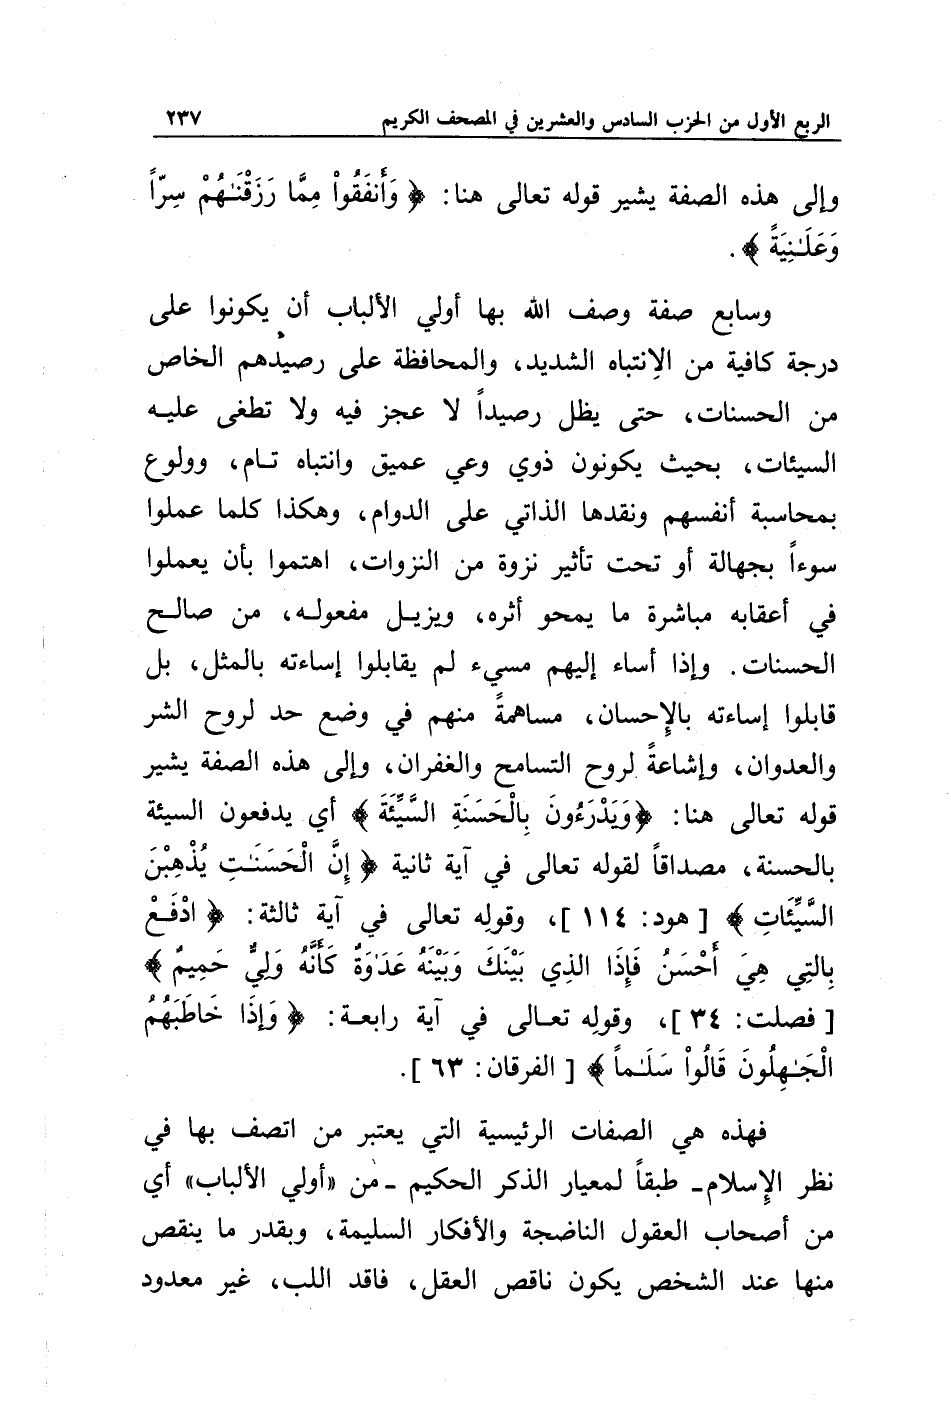 الربع الأول من الحزب السادس والعشرين في المصحف الكريم ٢٣٧
وإلى هذه الصفة يشير قوله تعالى هنا: ﴿ وَأَنفَقُواْ مِمَّا رَزَقْنَـٰهُمْ سِرّاً
وَعَلَـٰنِيَةً ﴾ .
وسابع صفة وصف الله بها أولي الألباب أن يكونوا على
درجة كافية من الإنتباه الشديد، والمحافظة على رصيدهم الخاص
من الحسنات، حتى يظل رصيداً لا عجز فيه ولا تطغى عليه
السيئات، بحيث يكونون ذوي وعي عميق وانتباه تام، وولوع
بمحاسبة أنفسهم ونقدها الذاتي على الدوام، وهكذا كلما عملوا
سوءاً بجهالة أو تحت تأثير نزوة من النزوات، اهتموا بأن يعملوا
في أعقابه مباشرة ما يمحو أثره، ويزيل مفعوله، من صالح
الحسنات. وإذا أساء إليهم مسيء لم يقابلوا إساءته بالمثل، بل
قابلوا إساءته بالإحسان، مساهمةً منهم في وضع حد لروح الشر
والعدوان، وإشاعةً لروح التسامح والغفران، وإلى هذه الصفة يشير
قوله تعالى هنا: ﴿وَيَدْرَءُونَ بِالْحَسَنَةِ السَّيِّئَةَ ﴾ أي يدفعون السيئة
بالحسنة، مصداقاً لقوله تعالى في آية ثانية ﴿ إِنَّ الْحَسَنَـٰتِ يُذْهِبْنَ
السَّيِّئَاتِ ﴾ [ هود: ١١٤ ]، وقولِه تعالى في آية ثالثة: ﴿ ادْفَعْ
بِالتِي هِيَ أَحْسَنُ فَإِذَا الذِي بَيْنَكَ وَبَيْنَهُ عَدَٰوَةٌ كَأَنَّهُ وَلِيٌّ حَمِيمٌ ﴾
[ فصلت: ٣٤ ]، وقولِه تعالى في آية رابعة: ﴿ وَإِذَا خَاطَبَهُمُ
الْجَـٰهِلُونَ قَالُواْ سَلَـٰماً ﴾ [ الفرقان: ٦٣ ].
فهذه هي الصفات الرئيسية التي يعتبر من اتصف بها في
نظر الإسلام ـ طبقاً لمعيار الذكر الحكيم ـ من «أولي الألباب» أي
من أصحاب العقول الناضجة والأفكار السليمة، وبقدر ما ينقص
منها عند الشخص يكون ناقص العقل، فاقد اللب، غير معدود